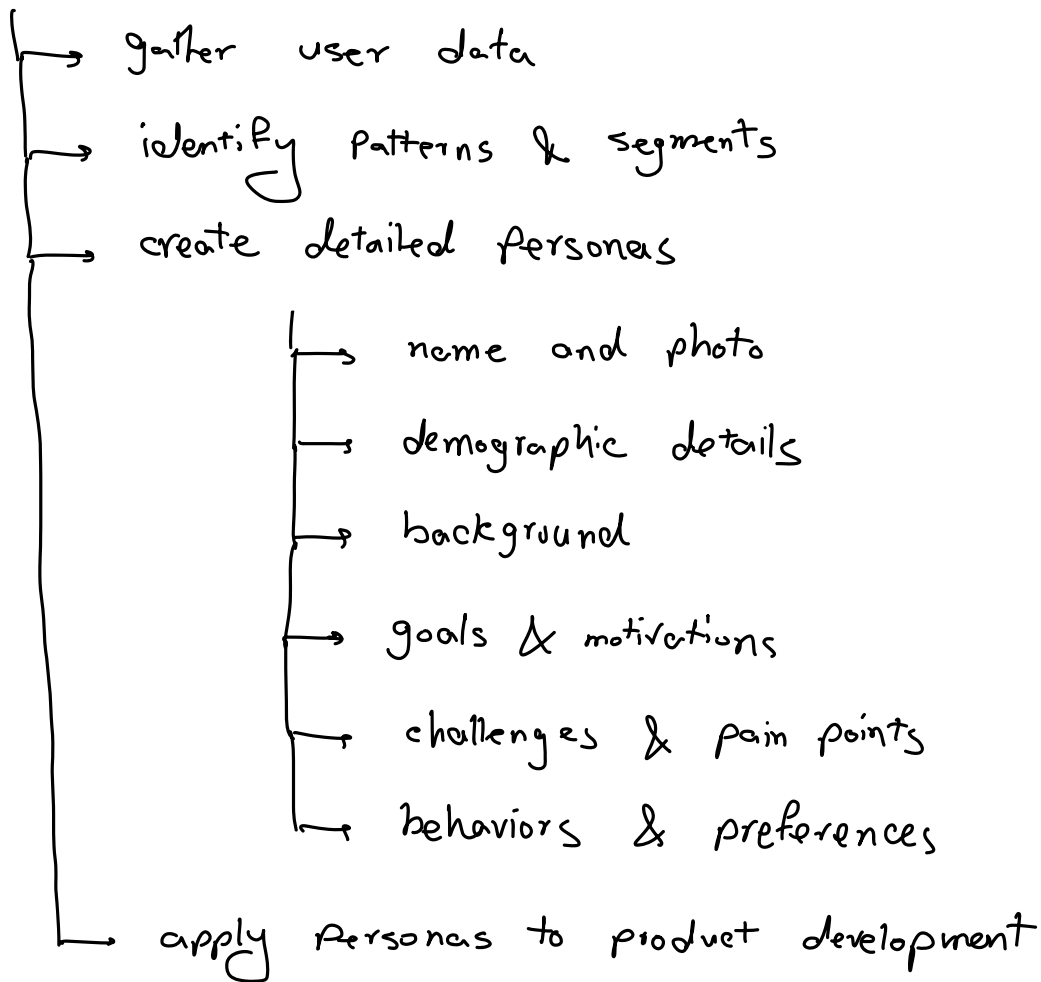 gather user data
identify patterns & segments
create detailed personas
name and photo
demographic details
background
goals & motivations
challenges & pain points
behaviors & preferences
apply personas to product development